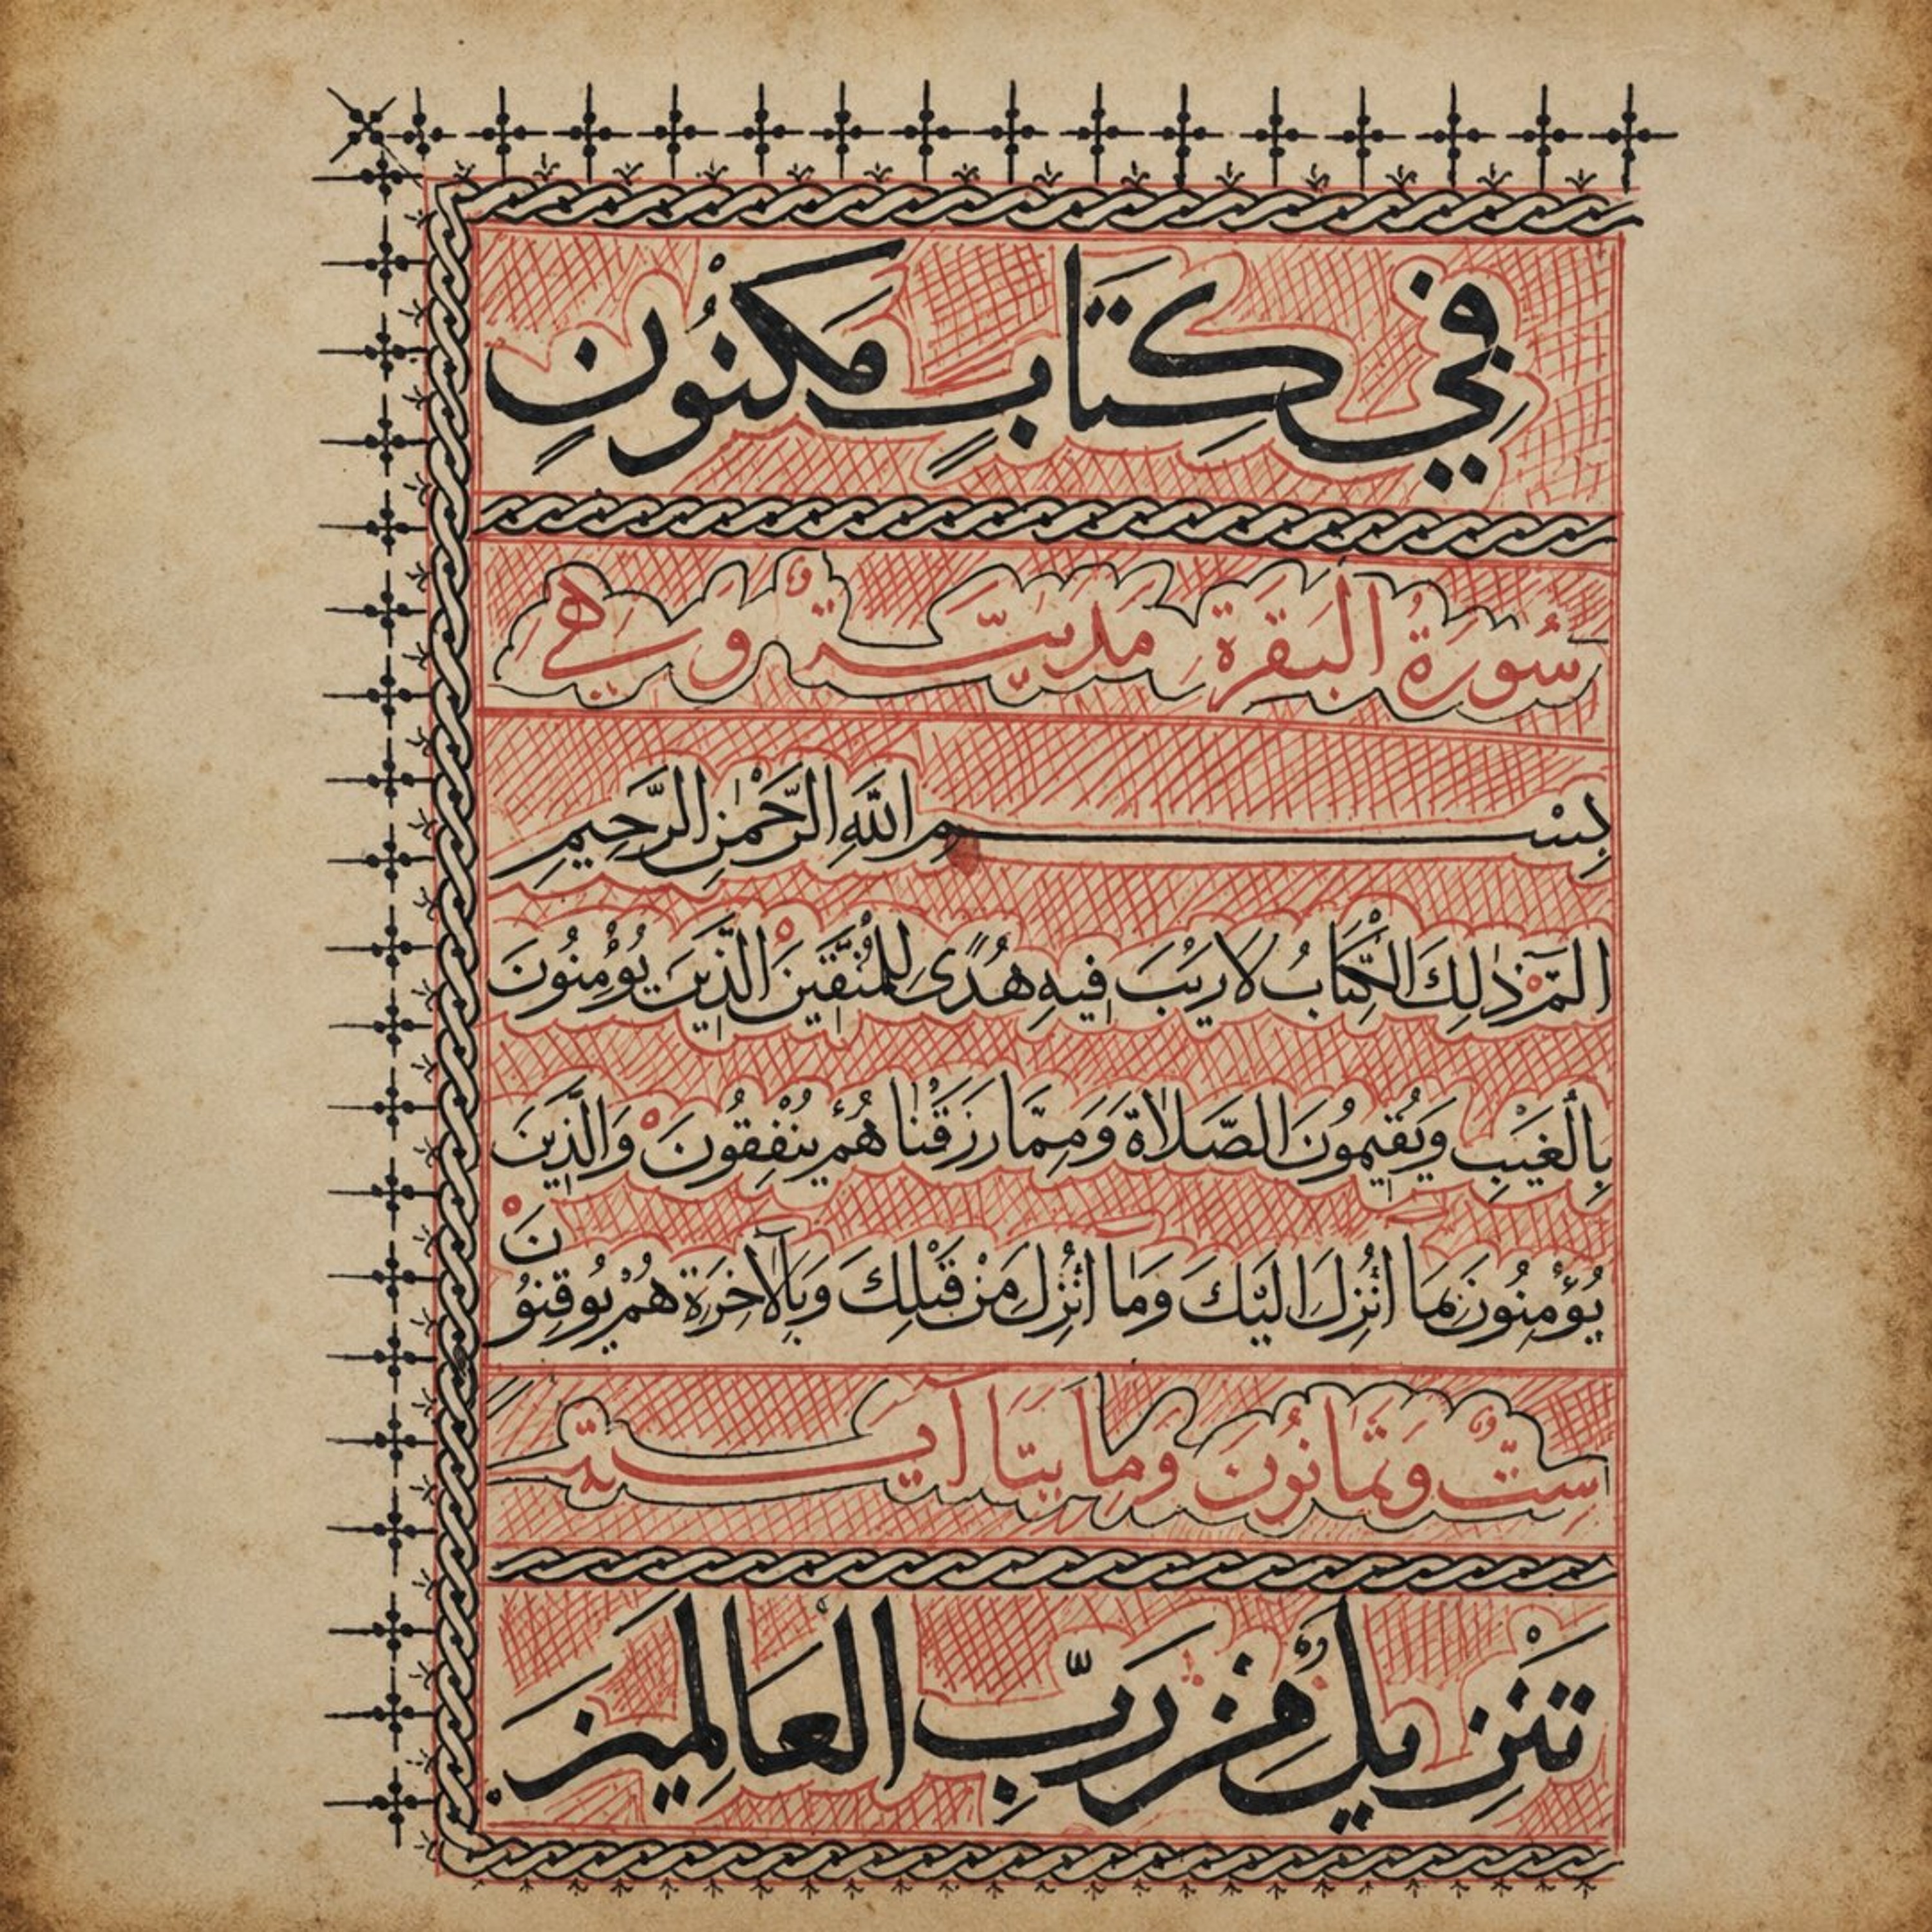 في كِتَابٍ مَكْنُونٍ
سُورَةُ البَقَرَة مَدَنِيَّةٌ وَهِيَ
بِسْمِ اللَّهِ الرَّحْمٰنِ الرَّحِيمِ
الٓمّٓ ذٰلِكَ الْكِتَابُ لَا رَيْبَ فِيهِ هُدًى لِلْمُتَّقِينَ الَّذِينَ يُؤْمِنُونَ
بِالْغَيْبِ وَيُقِيمُونَ الصَّلَاةَ وَمِمَّا رَزَقْنَاهُمْ يُنْفِقُونَ وَالَّذِينَ
يُؤْمِنُونَ بِمَا أُنْزِلَ إِلَيْكَ وَمَا أُنْزِلَ مِنْ قَبْلِكَ وَبِالْآخِرَةِ هُمْ يُوقِنُونَ
سِتٌّ وَثَمَانُونَ وَمِايتَا آيَة
تَنْزِيلٌ مِنْ رَبِّ الْعَالَمِينَ